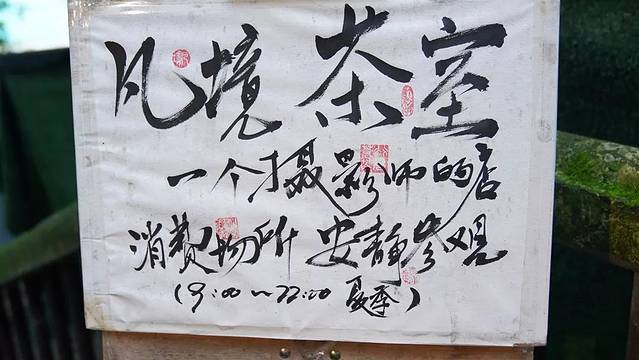 凡境茶室
一个摄影师的店
消费场所 安静参观
(9:00~22:00 夏季)